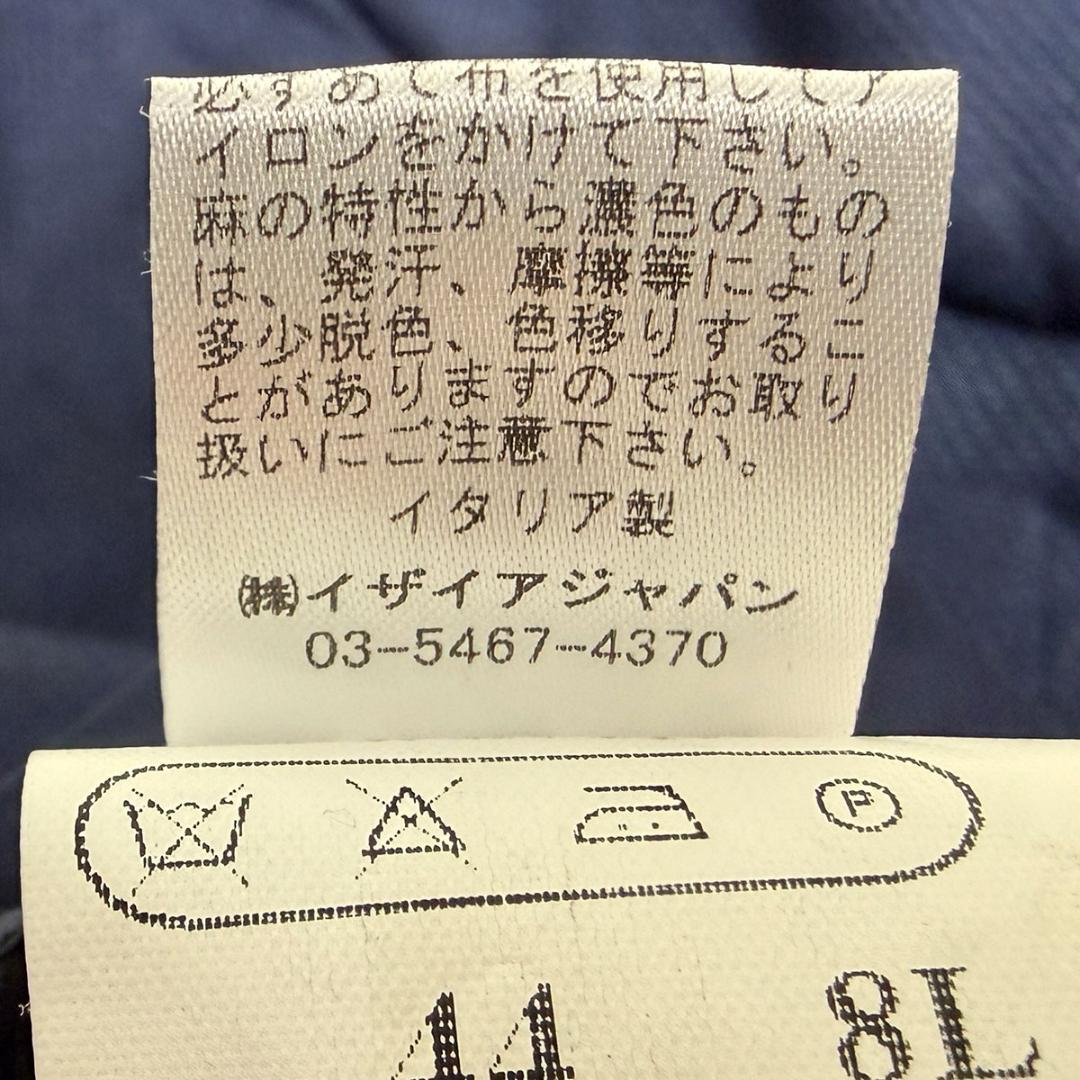 必ずあて布を使用してア
イロンをかけて下さい。
麻の特性から濃色のもの
は、発汗、摩擦等により
多少脱色、色移りするこ
とがありますのでお取り
扱いにご注意下さい。
イタリア製
㈱イザイアジャパン
03-5467-4370
P
44 8L